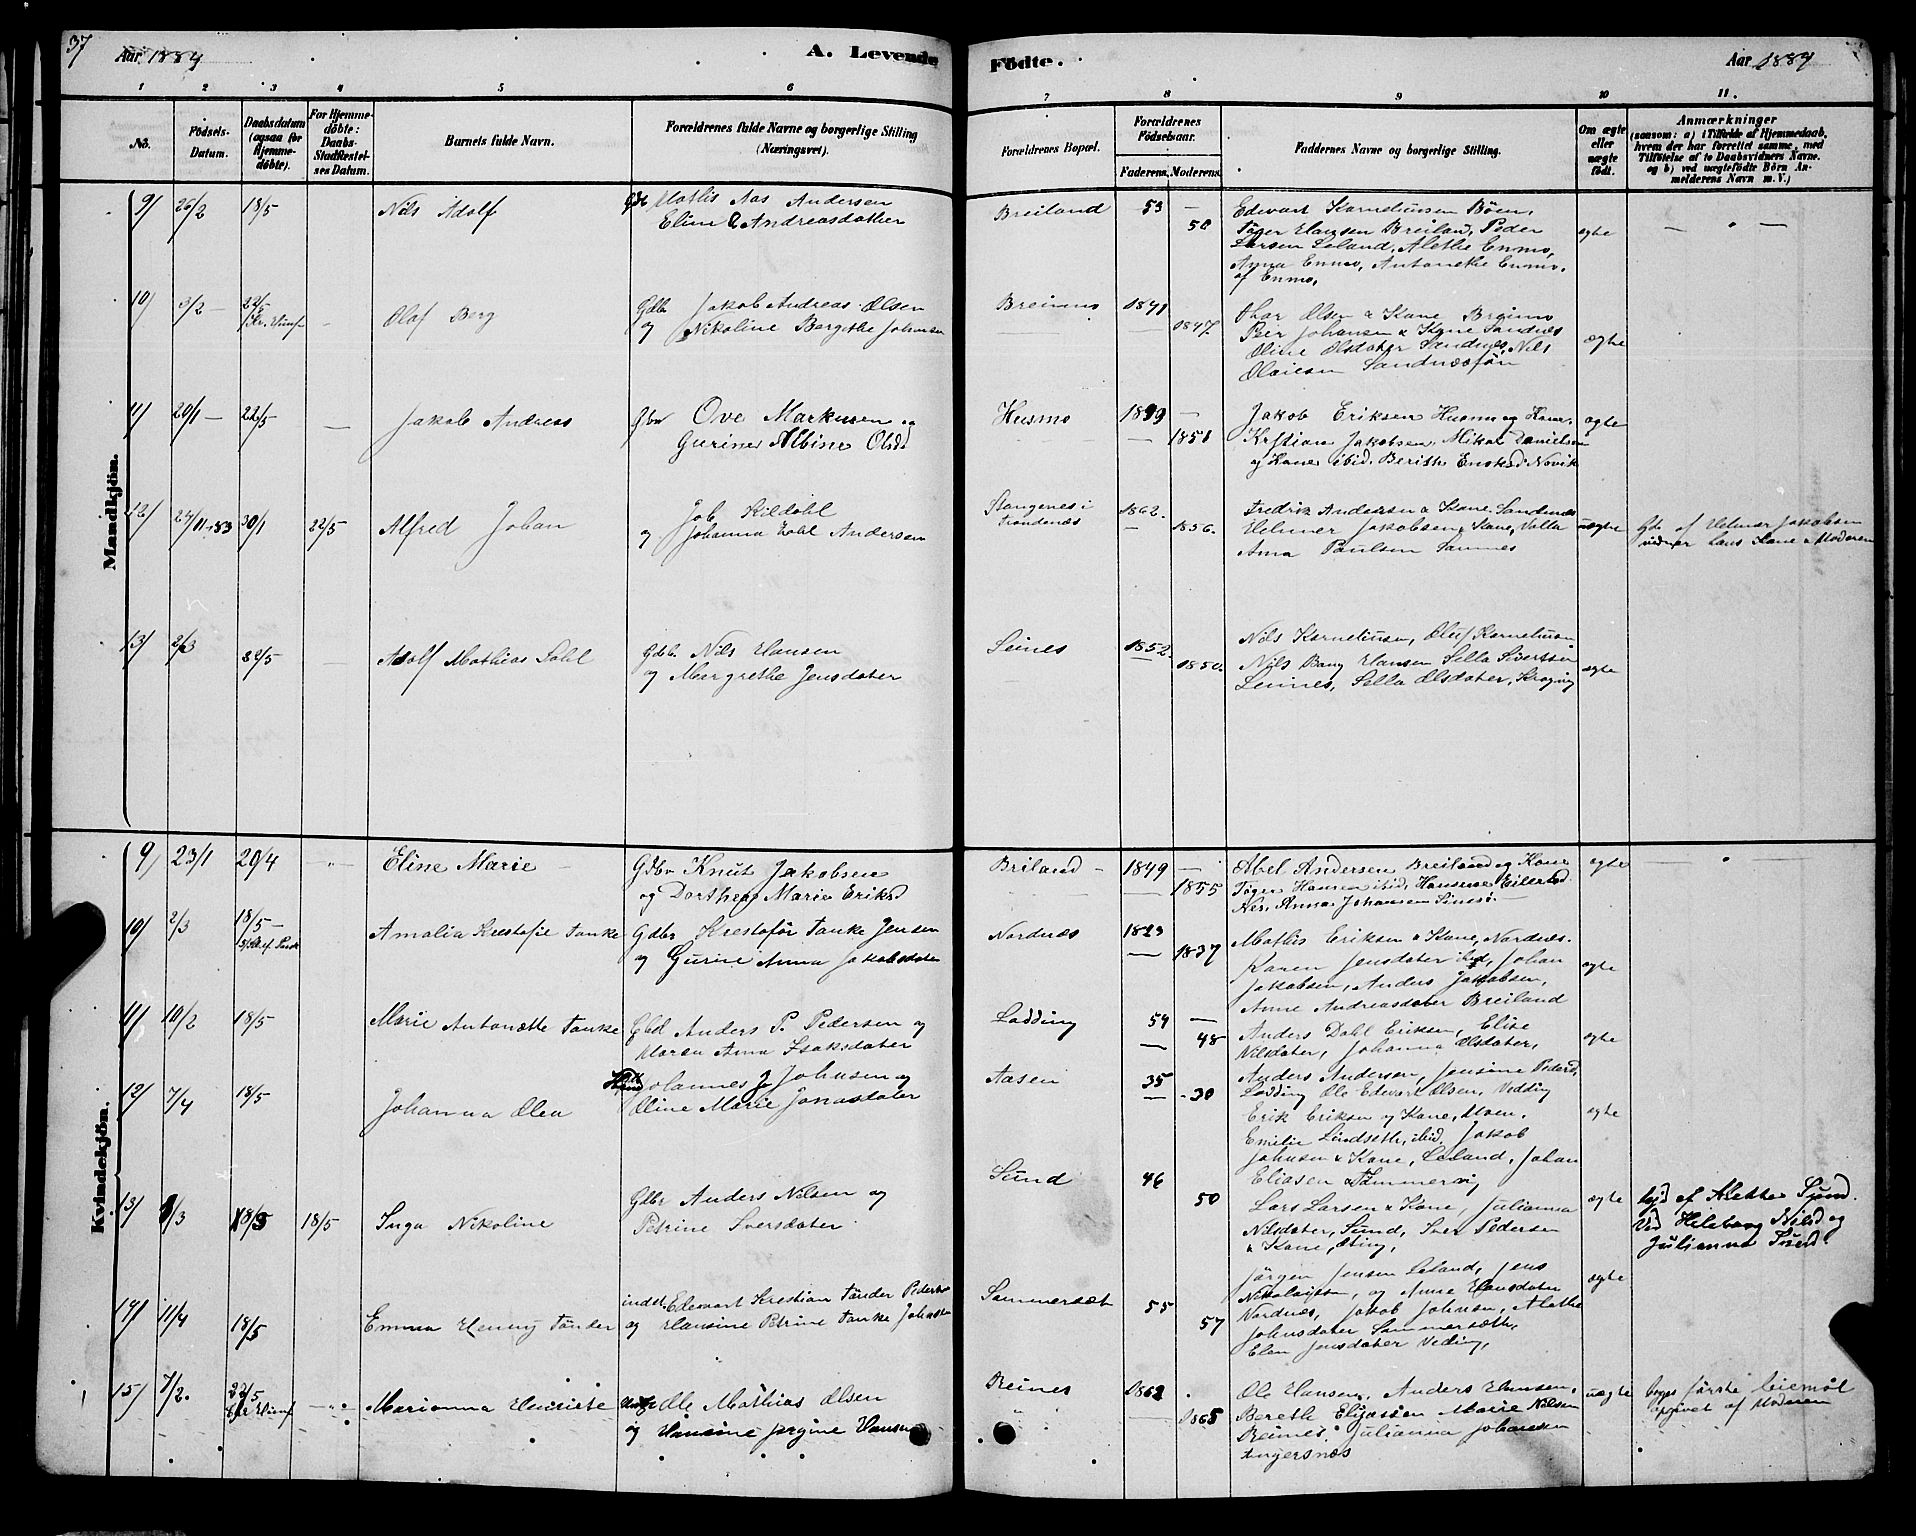 37
Aar 1884
A. Levende
Fødte.
Aar 1884
1 2 3 4 5 6 7 8 9 10 11.
No.
Fødsels-
Datum.
Daabsdatum
(ogsaa for
Hjemme-
døbte).
For Hjemme-
døbte:
Daabs-
Stadfæstel-
ses Datum.
Barnets fulde Navn.
Forældrenes fulde Navne og borgerlige Stilling
(Næringsvei).
Forældrenes Bopæl.
Forældrenes
Fødselsaar.
Faderens. Moderens.
Faddernes Navne og borgerlige Stilling.
Om ægte
eller
uægte
født.
Anmærkninger
(saasom: a) i Tilfælde af Hjemmedaab,
hvem der har forrettet samme, med
Tilføielse af to Daabsvidners Navne.
og b) ved uægtefødte Børn An-
melderens Navn m. V.)
Mandkjøn.
9/ 26/2 18/5 Nils Adolf
Mathis Aas Andersen
Eline Andreasdatter
Breiland 53 —
58
Edevart Korneliussen Bøen,
Tøger Hansen Breiland, Peder
Larsen Leland, Alethe Enmo,
Anna Enmo, Antonethe Enmo.
af Enmo,
ægte
10/ 3/2 22/5
Olaf Berg
Gdbr Jakob Andreas Olsen
og Nikoline Bergithe Johnsen
Breimo 1841
1847.
Olsen & Kone Breimo
Peir Johansen & Kone Sandnes
Oline Olsdater Sandnes, Nils
Olaisen
ægte
11/ 20/1 — 22/5 — Jakob Andreas
Gbr Ove Markusen og
Gurine Albine Olsd
Husmo —
1851
Jakob Eriksen Husmo og Kone.
Kristian Jakobsen, Mikal Danielsen
og Kone ibid. Berith Novik
ægte
12/ 24/11-83 30/1 22/5 Alfred Johan
Job Kildahl
og Johanna Andersen
Stangenes i
Trondenæs
1862.
1856.
Fredrik Andersen & Kone, Sandnes
Helmer Jakobsen & Kone, Valla
Ana Paulsen
uægte
af Helmer Jakobsen
vidner hans Kone & Moderen
13/ 2/3 22/5 — Adolf Mathias Dahl
Gdb. Nils Hansen
og Margrethe Jensdater
Leines 1852.
1850.
Nils Korneliusen, Oluf Korneliusen
Nils Bang Hansen Sella Sivertsen
Leines, Sella Olsdater,
ægte
Kvindekjøn.
9/ 23/1 20/4 Eline Marie
Gdbr Knut Jakobsen
og Dorthea Marie Eriksd
Briland 1849 —
1855
Abel Andersen Breiland og Kone
Tøger Hansen ibid, Hansine Eilertsd
Nes. Anna Johansen
ægte
10/ 2/3 18/5
Amalia Krestofie Tanke
Gdbr Kristofør Tanke Jensen
og Gurine Anna Jakobsdater
Nordnæs 1823
1837
Mathis Eriksen & Kone, Nordnæs.
Karen Jensdater ibd, Johan
Jakobsen, Anders Jakobsen,
Anne Andreasdater Breiland
ægte
11/ 10/2 18/5 Marie Antonætte Tanke
Anders P. Pedersen og
Maren Ana Isaksdater
Ladding 54 —
48
Anders Dahl Eriksen, Elise
Nilsdater, Johanna Olsdater,
Anders Andersen, Jensine Pedersd,
Ladding
ægte
12/ 7/4 18/5 Johanna Olea
Johannes J Johnsen og
Oline Marie Jonasdater
Aasen 35
30
Ole Edevart Olsen, Vedding
Erik Eriksen og Kone,
Emilie Lindseth, ibid, Jakob
Johnsen & Kone, Leland, Johan
Eliasen
ægte
13/ /3 18/5 18/5 Inga Nikoline
Gdbr Anders Nilsen og
Petrine Sversdater
Sund 46
50
Lars Larsen & Kone, Julianna
Nilsdater, Sund, Sver Pedersen
& Kone,
ægte
af Alethe Sund.
Ved Hilsborg Nilsd og
Julianna Sund.
14/ 11/4 18/5 Emma Henny Tønder
inds. Edevart Kristian Tønder Pedersen
og Hansine Petrine Tanke Johnsen
Sommersæt 55
57
Jørgen Jensen Leland, Jens
Nikolaisen, og Anne Hansdater
Nordnæs, Jakob Johnsen, Alethe
Johnsdater Sommerseth,
Elen Jensdater Veding,
ægte
15/ 7/2. 22/5
Marianna Henriete
Ole Mathias Olsen
og Hansine Jørgine Hansen
Reines 1862
1865
Ole Hansen, Anders Hansen,
Bereth Eliassen Marie Nilsen
Reines, Julianna Johansen
Angersnæs
uægte
første leiemål
opgivet af Moderen